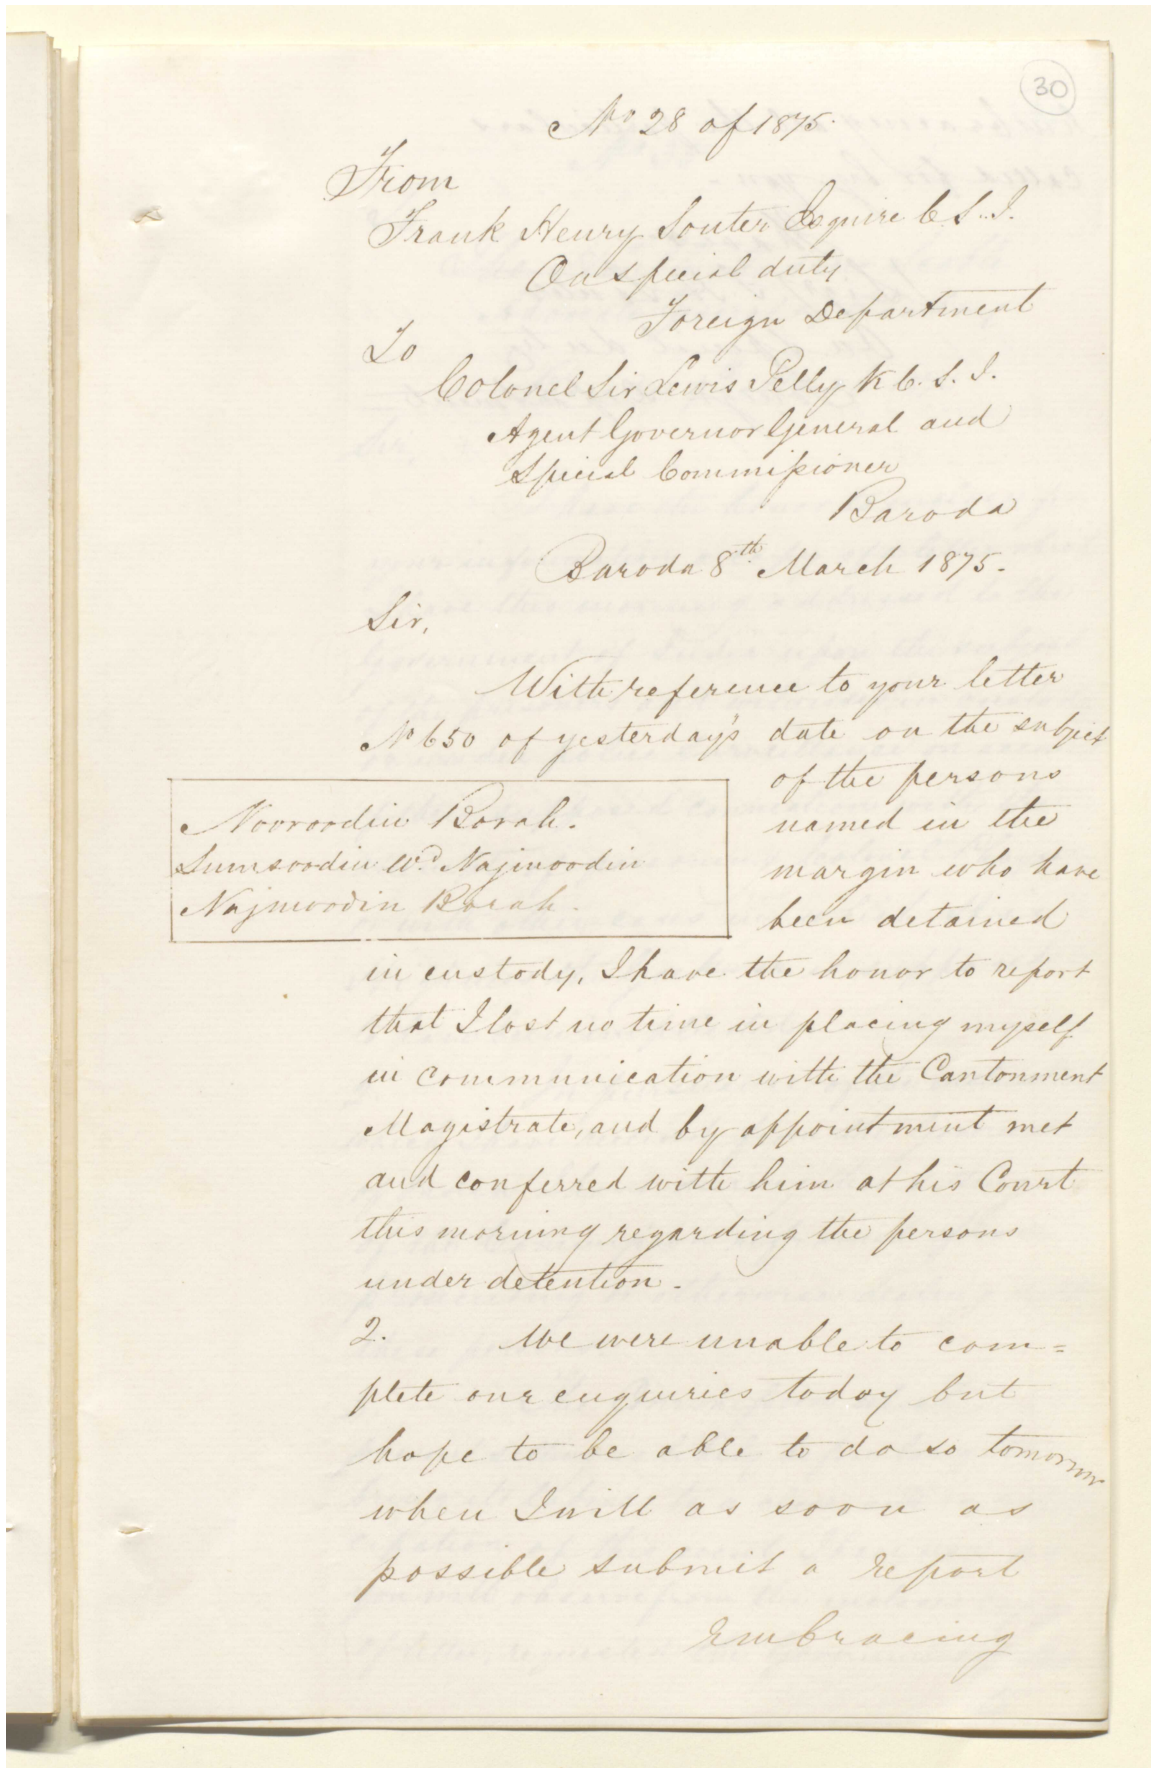 30
No 28 of 1875.
From
Frank Henry Souter Esquire C.S.I.
On special duty
Foreign Department
To
Colonel Sir Lewis Pelly K.C.S.I.
Agent Governor General and
Special Commissioner
Baroda
Baroda 8th March 1875.
Sir,
With reference to your letter
No 650 of yesterday's date on the subject
of the persons
named in the
margin who have
been detained
Nooroodin Borah.
Sumsoodin Wd. Najmoodin
Najmoodin Borah.
in custody, I have the honor to report
that I lost no time in placing myself
in communication with the Cantonment
Magistrate, and by appointment met
and conferred with him at his Court
this morning regarding the persons
under detention.
2. We were unable to com=
plete our enquiries today but
hope to be able to do so tomorrow
when I will as soon as
possible submit a report
embracing